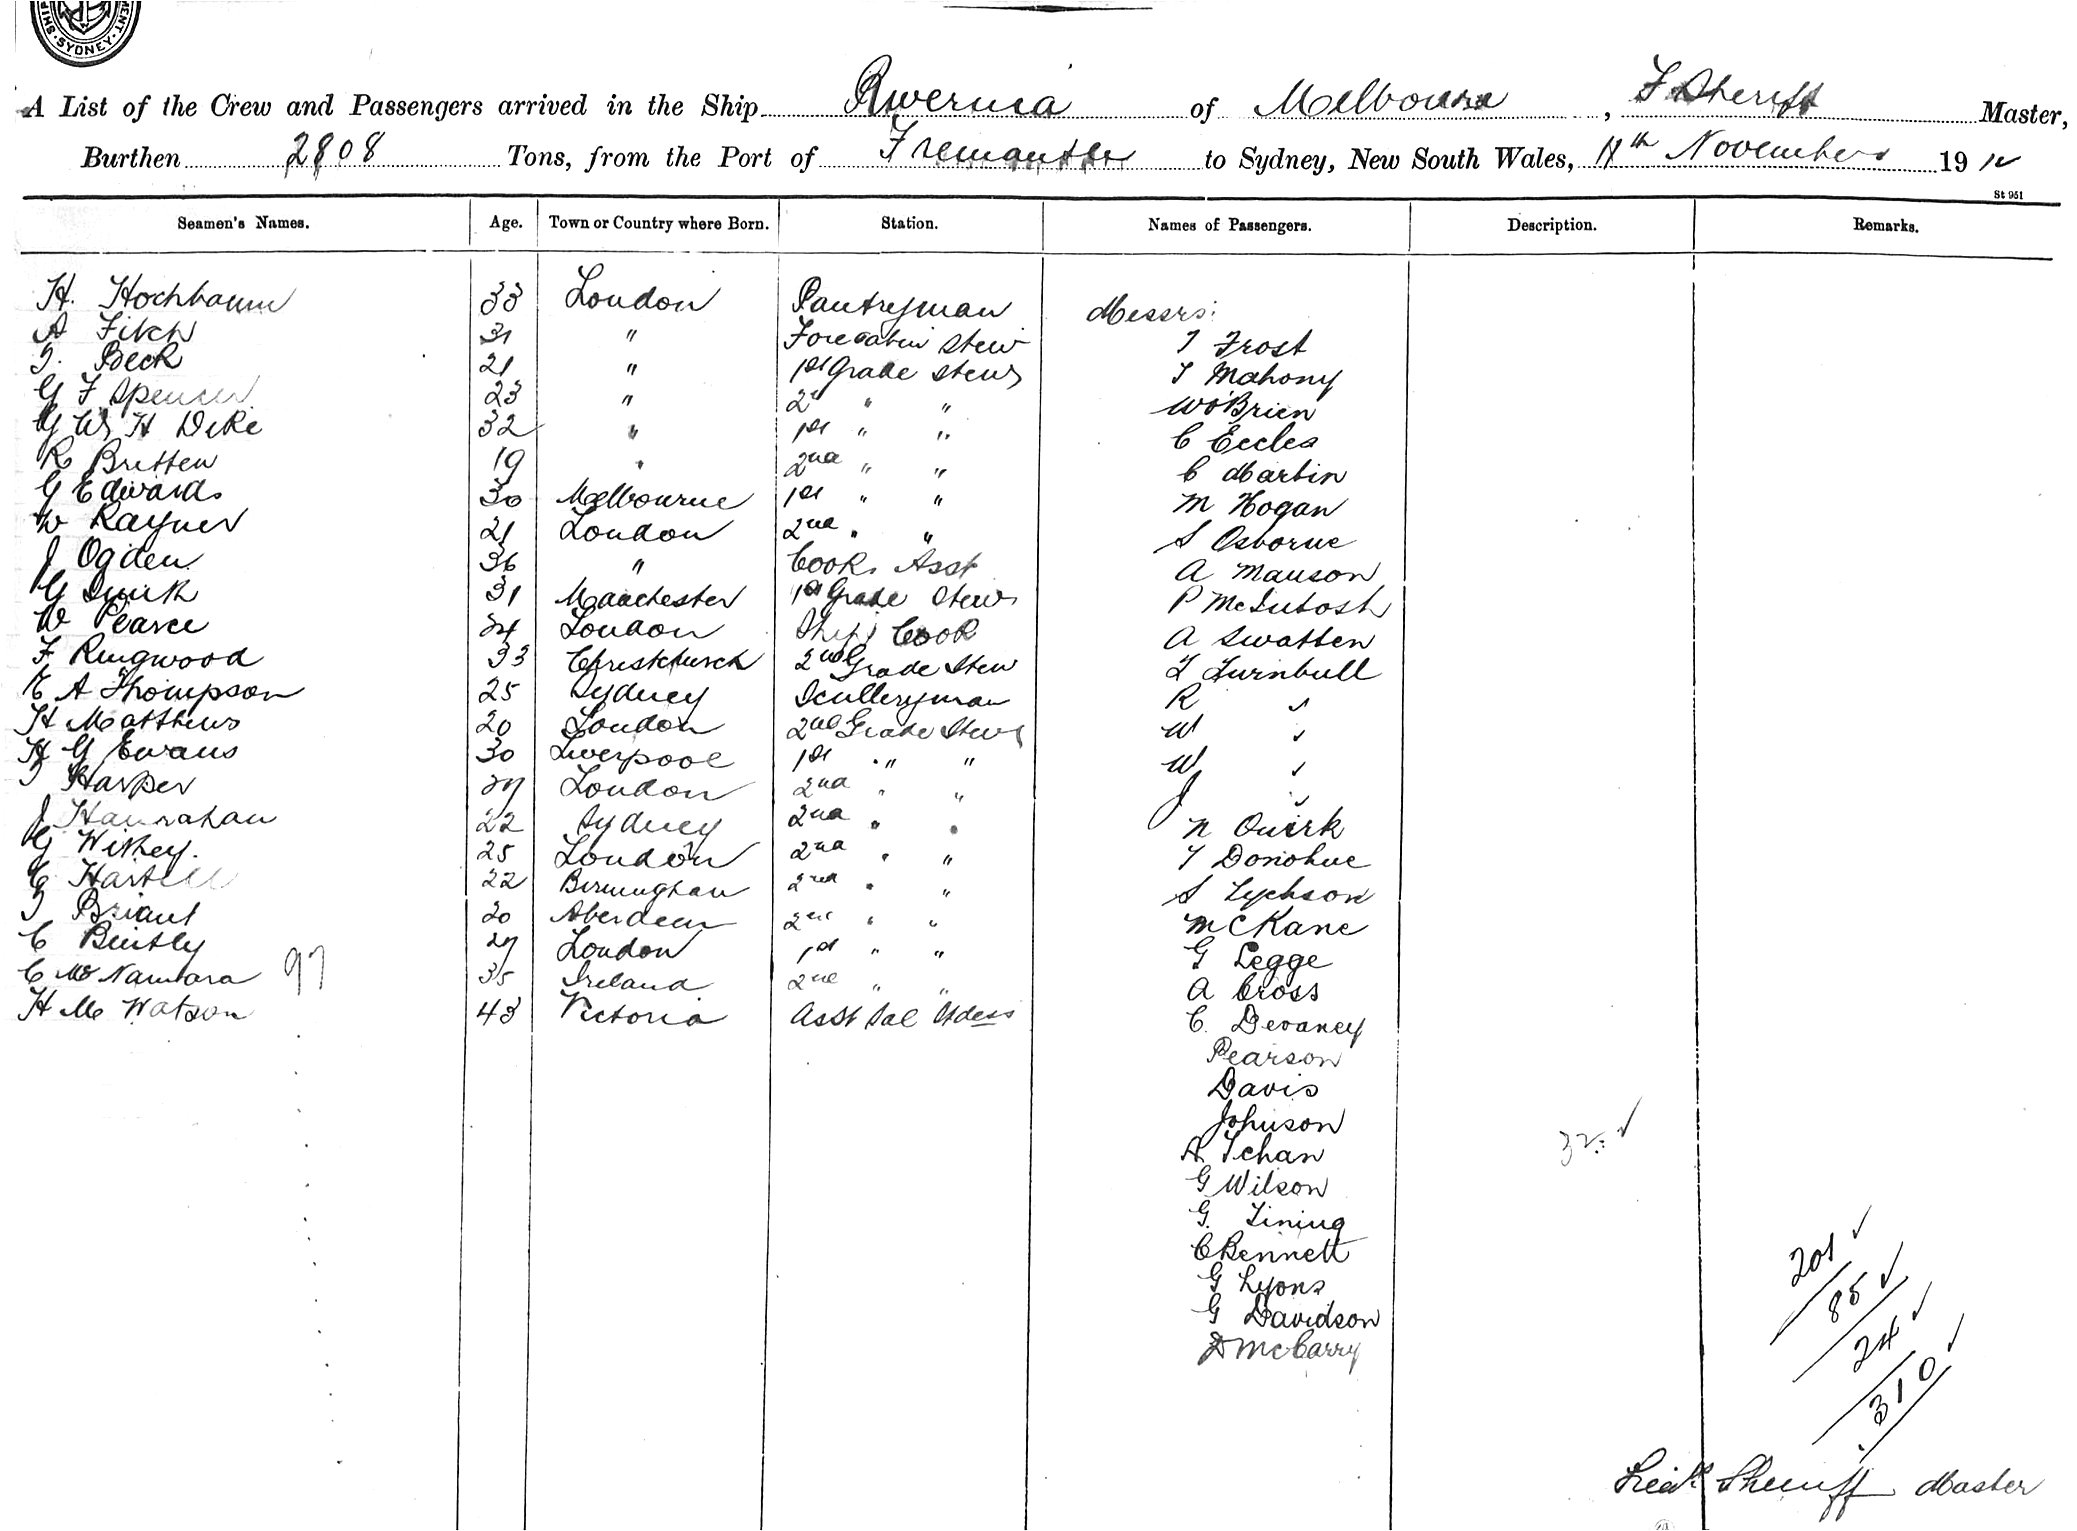 MENT. SYDNEY. SHIP
A List of the Crew and Passengers arrived in the Ship Riverina of Melbourne, F Sheriff Master,
Burthen 2808 Tons, from the Port of Fremantle to Sydney, New South Wales, 11th November 1912
St 951
Seamen's Names. Age. Town or Country where Born. Station. Names of Passengers. Description. Remarks.
H. Hochbaum 33 London Pantryman Messrs:
A Fitch 31 " Forecabin Stew T Frost
T. Beck 21 " 1st Grade Stew T Mahony
G F Spencer 23 " 2nd " " W O'Brien
G W H Deke 32 " 1st " " C Eccles
R Britten 19 " 2nd " " C Martin
G Edwards 30 Melbourne 1st " " M Hogan
W Rayner 21 London 2nd " " S Osborne
J Ogden 36 " Cooks Asst A Manson
G Quirk 31 Manchester 1st Grade Stew P McIntosh
W Pearce 24 London Ships Cook A Swatten
F Ringwood 33 Christchurch 2nd Grade Stew T Turnbull
E A Thompson 25 Sydney Sculleryman R "
H Matthews 20 London 2nd Grade Stew W "
H G Evans 30 Liverpool 1st " " W "
T Harper 27 London 2nd " " J "
J Hanrahan 22 Sydney 2nd " " N Quirk
G Withey. 25 London 2nd " " T Donohue
C Hartell 22 Birmingham 2nd " " S Lychson
T Briant 20 Aberdeen 2nd " " McKane
C Bently 27 London 1st " " G Legge
C McNamara 97 35 Ireland 2nd " " A Cross
H M Watson 43 Victoria Asst Sal Stdess C. Devaney
Pearson
Davis
Johnson
A Tehan 32 ✓
G Wilson
G. Tining
C Bennett
G Lyons
G Davidson
D McCarry
201 ✓
85 ✓
24 ✓
310 ✓
Fredk Sheriff Master